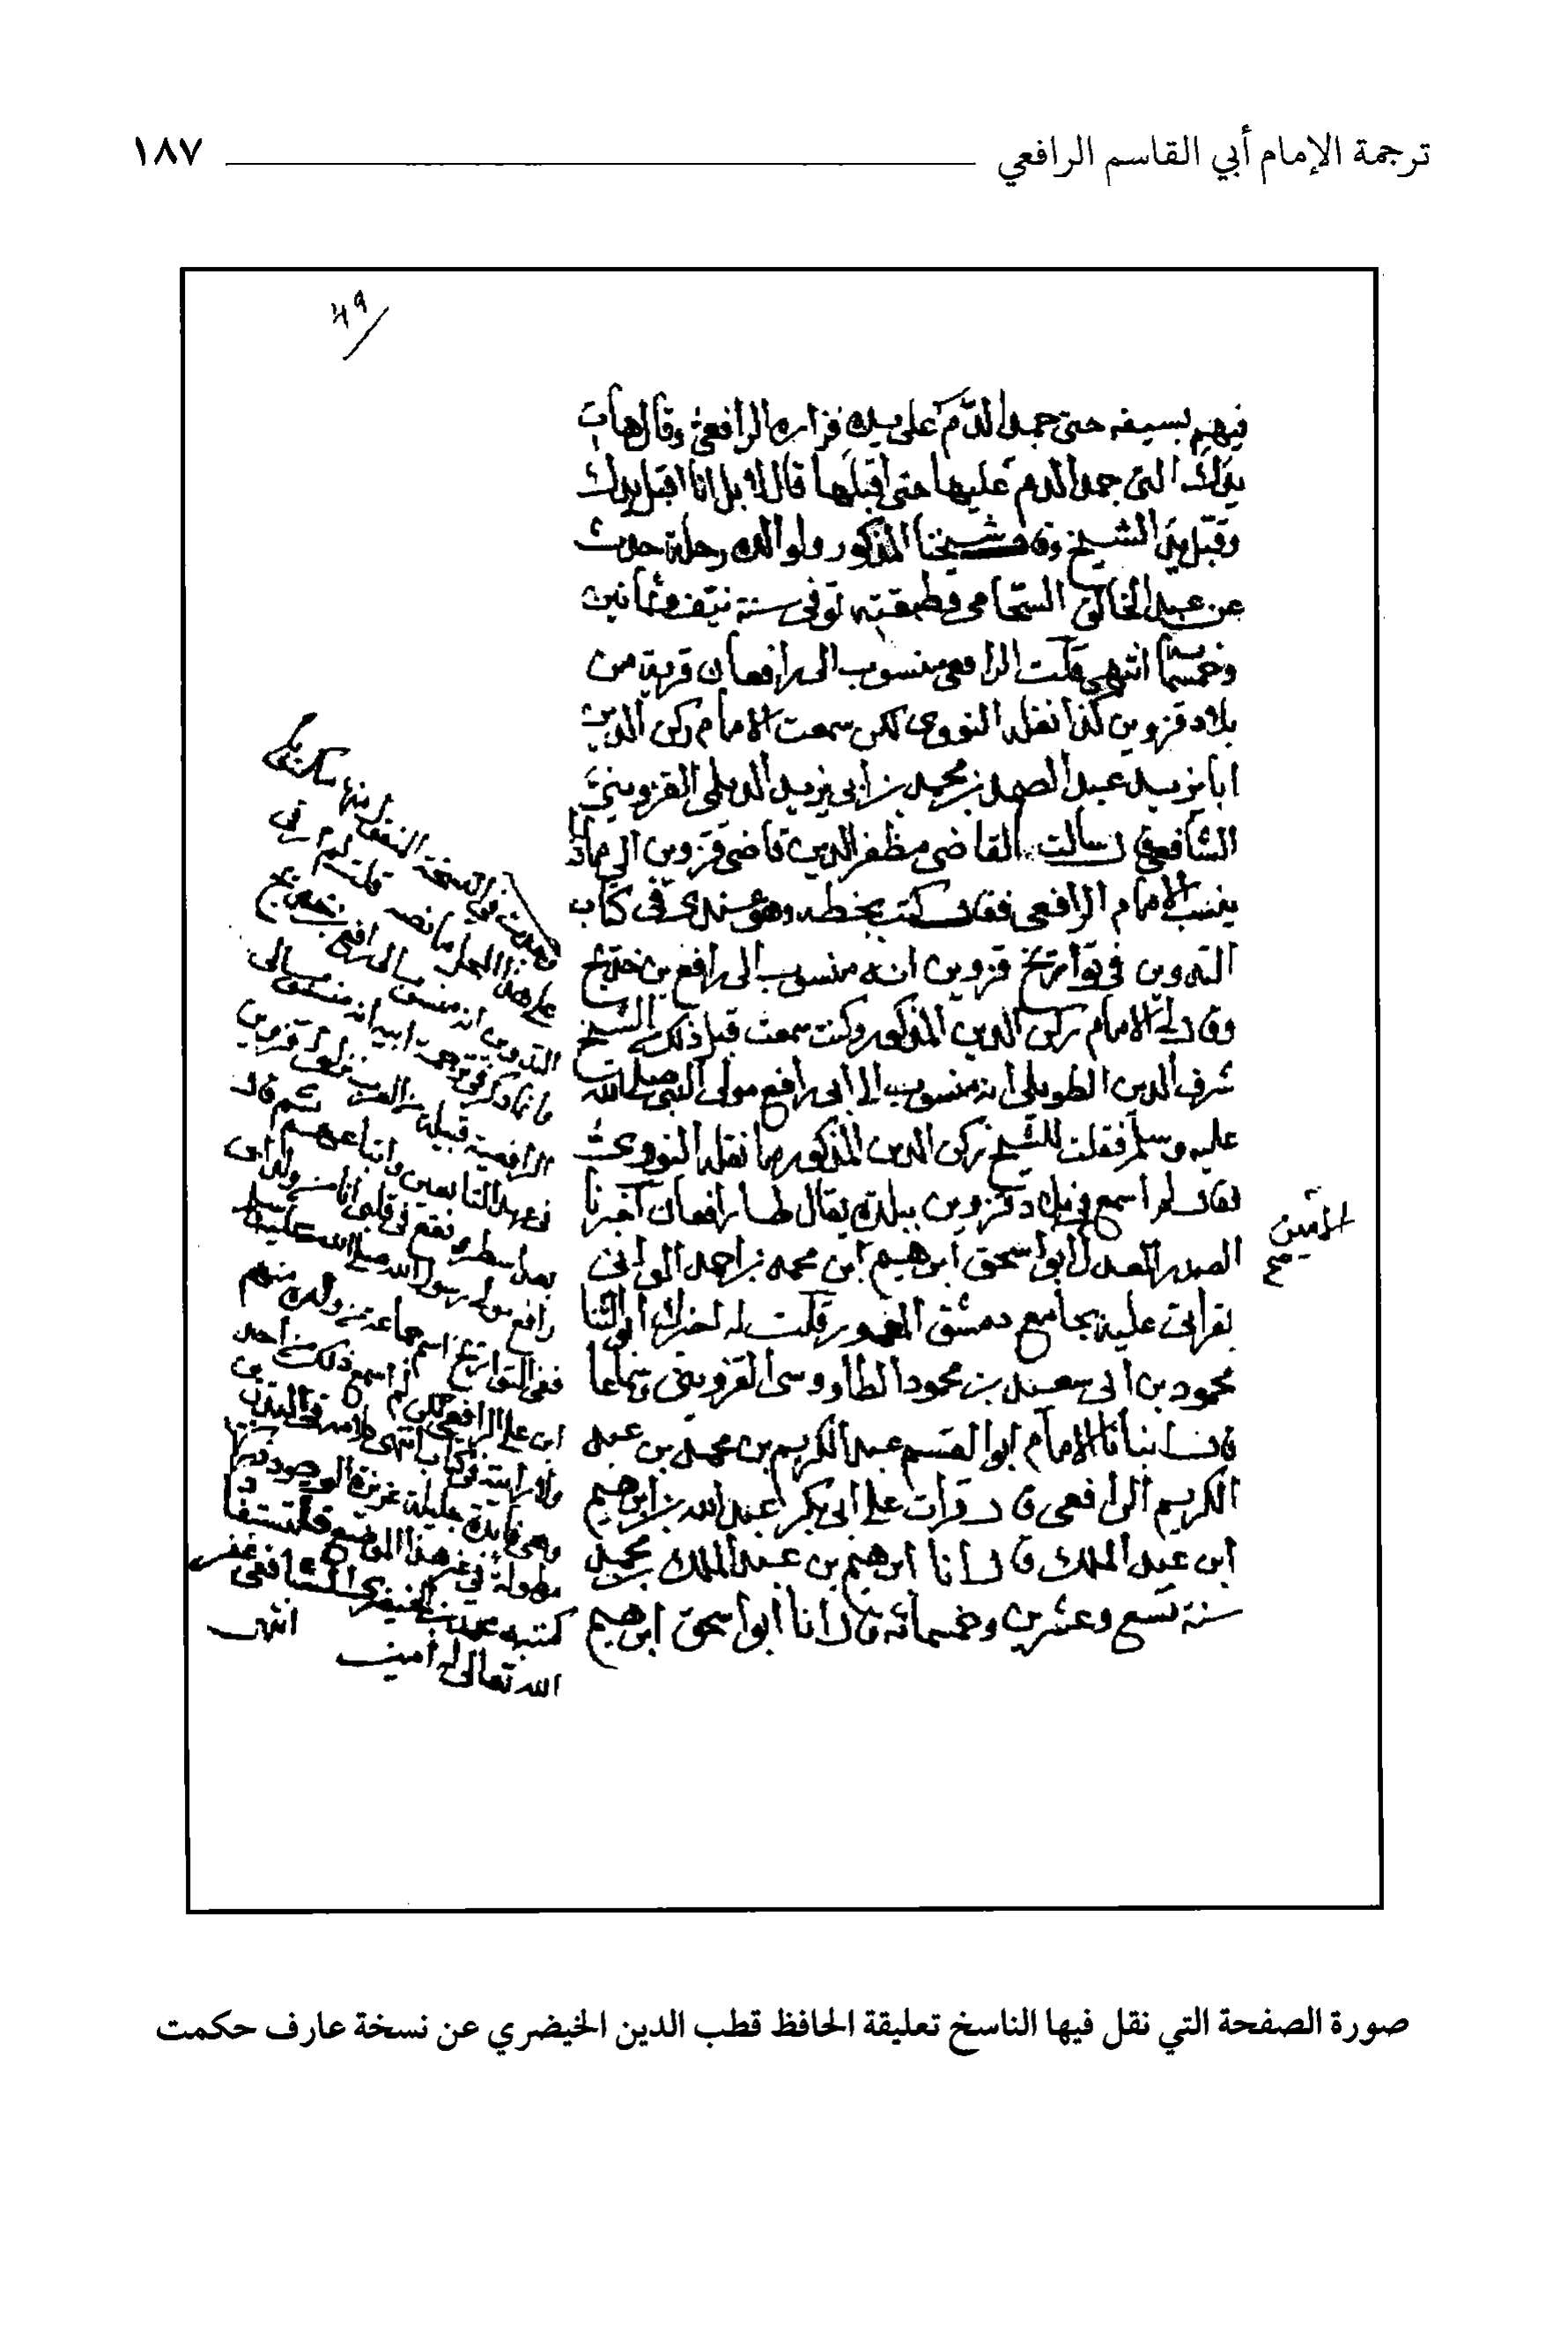 ترجمة الإمام أبي القاسم الرافعي ١٨٧
٤٩
فيهم بسيفه حتى جمد الدم على يده فزاره الرافعي وقال هات
يدك التي جمد الدم عليها حتى اقبلها قال لا بل انا اقبل يدك
وقبل يد الشيخ وقال شيخنا المذكور ولوالده رحلة حدث
عن عبد الخالق الشحامي وطبقته توفي سنة نيف وثمانين
وخمسمائة انتهى قلت الرافعي منسوب الى رافعان قرية من
بلاد قزوين كذا نقله النووي لكن سمعت الامام ركن الدين
ابا يزيد عبد الصمد بن محمد بن ابي يزيد الديلمي القزويني
الشافعي سالت القاضي مظفر الدين قاضي قزوين الى ماذا
ينسب الامام الرافعي فقال كتب بخطه وهو عندي في كتاب
التدوين في تواريخ قزوين انه منسوب الى رافع بن خديج
وقال لي الامام ركن الدين المذكور وكنت سمعت قبل ذلك الشيخ
شرف الدين الطويل انه منسوب الى ابي رافع مولى النبي صلى الله
عليه وسلم فقلت للشيخ ركن الدين المذكور ما نقله النووي
فقال لم اسمع في بلاد قزوين ببلدة يقال لها رافعان آخبرنا
الصدر المعدل ابو اسحق ابرهيم ابن محمد بن احمد الواني
بقراتي عليه بجامع دمشق المعمور قلت له اخبرك ابو الثنا
محمود بن ابي سعيد بن محمود الطاووسي القزويني سماعا
قال انبأنا الامام ابو القسم عبد الكريم بن محمد بن عبد
الكريم الرافعي قال قرات على ابي بكر عبد الله بن ابرهيم
ابن عبد الملك قال انا ابرهيم بن عبد الملك بن محمد
سنة تسع وعشرين وخمسمائة قال انا ابو اسحق ابرهيم
صح
النسخة
على هذا المحل ما نصه
التدوين انه منسوب الى رافع بن خديج
وانما ذكر في ترجمة ابيه انه منسوب الى
الرافعية قبيلة من العرب نزلوا قزوين
في عهد التابعين واتباعهم ثم قال
بعد اسطر ويقع في قلبي انا من ولد ابي
رافع مولى رسول الله صلى الله عليه وسلم
ففي التواريخ اسم جماعة من ولده منهم
ابن علي الرافعي لكن لم اسمع ذلك من احد
ولا رايته في كتاب انتهى كلامه في التدوين
وهي فايدة جليلة عزيزة الوجود
مطولة في غير هذا الموضع فلتستفد
كتبه محمد الخيضري الشافعي غفر
الله تعالى له امين انتهى
صورة الصفحة التي نقل فيها الناسخ تعليقة الحافظ قطب الدين الخيضري عن نسخة عارف حكمت